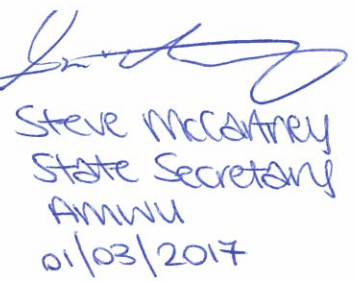 Steve McCartney
State Secretary
AMWU
01/03/2017